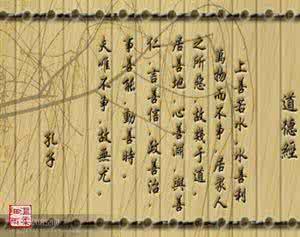 道德經
上善若水．水善利
萬物而不争．居衆人
之所惡．故幾于道．
居善地．心善淵．與善
仁．言善信．政善治．
事善能．動善時．
夫唯不争．故無尤．
孔子